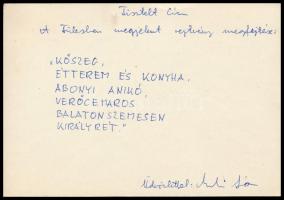 Tisztelt Cím
A Fülesben megjelent rejtvény megfejtése:
„KŐSZEG,
ÉTTEREM ÉS KONYHA,
ABONYI ANIKÓ,
VERŐCEMAROS
BALATONSZEMESEN
KIRÁLYRÉT."
Üdvözlettel: